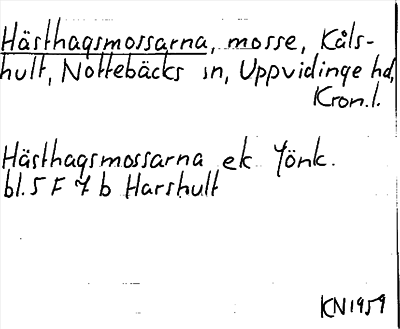 Hästhagsmossarna, mosse, Kåls-
hult, Nottebäcks sn, Uppvidinge hd,
Kron.l.
Hästhagsmossarna ek Jönk.
bl. 5 F 7 b Harshult
KN1959